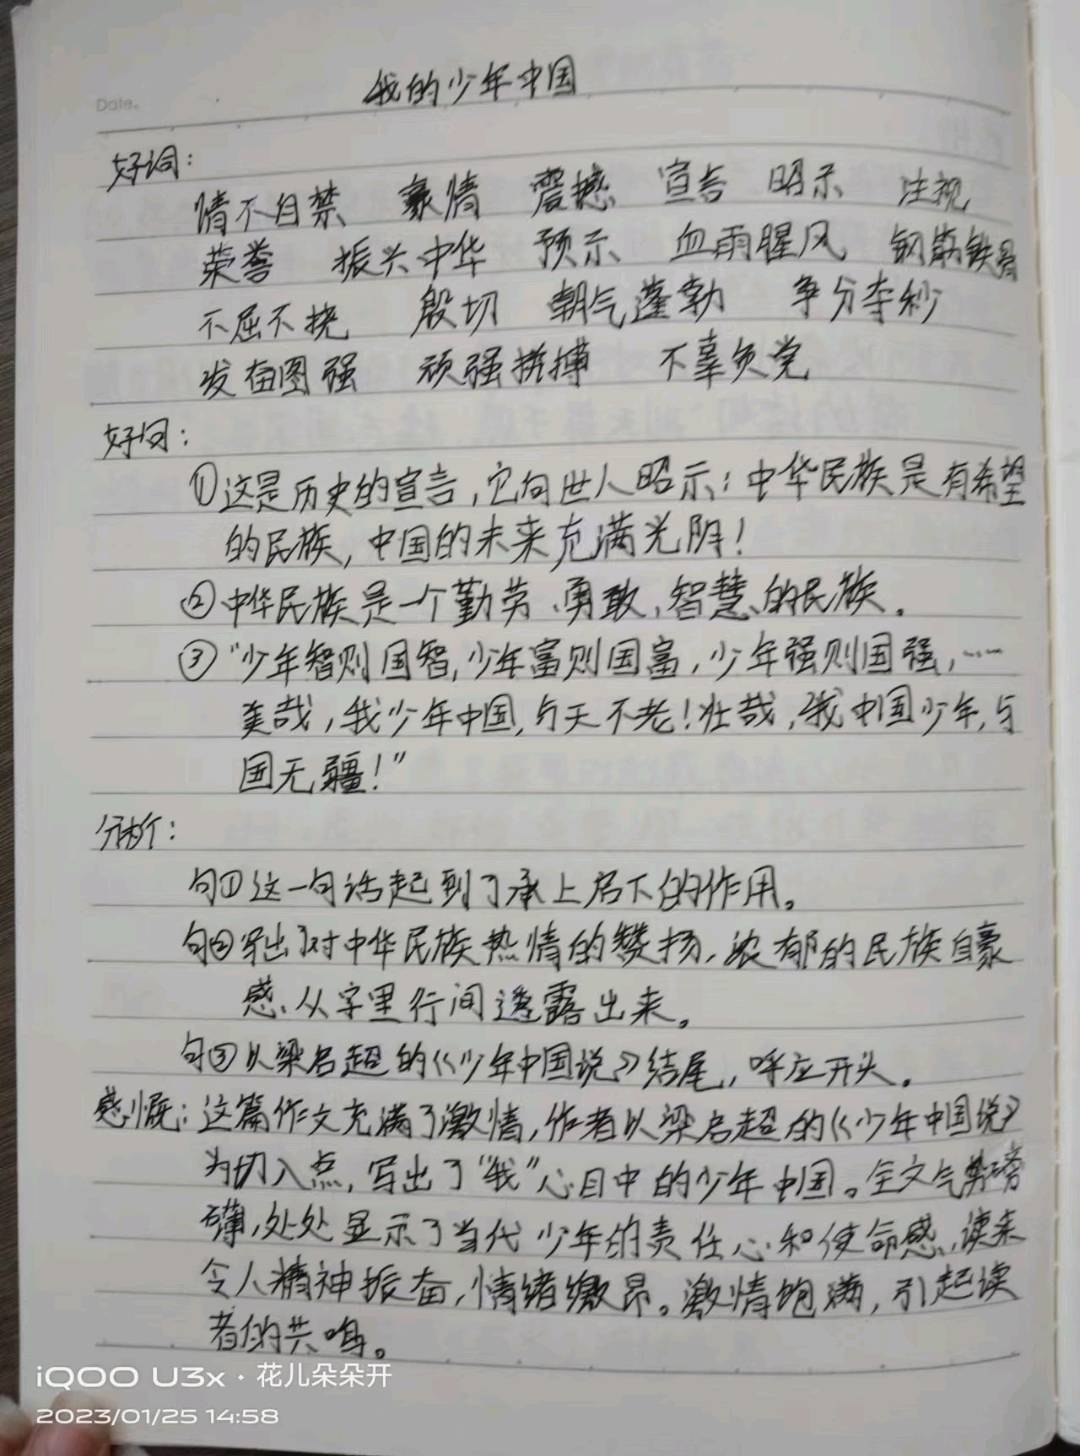 Date.
我的少年中国
好词:
情不自禁 豪情 震撼 宣告 昭示 注视
荣誉 振兴中华 预示 血雨腥风 钢筋铁骨
不屈不挠 殷切 朝气蓬勃 争分夺秒
发奋图强 顽强拼搏 不辜负党
好句:
①这是历史的宣言,它向世人昭示:中华民族是有希望
的民族,中国的未来充满光阴!
②中华民族是一个勤劳、勇敢、智慧的民族。
③“少年智则国智,少年富则国富,少年强则国强,……
美哉,我少年中国,与天不老!壮哉,我中国少年,与
国无疆!”
分析:
句①这一句话起到了承上启下的作用。
句②写出了对中华民族热情的赞扬,浓郁的民族自豪
感从字里行间透露出来。
句③以梁启超的《少年中国说》结尾,呼应开头。
感慨:这篇作文充满了激情,作者以梁启超的《少年中国说》
为切入点,写出了“我”心目中的少年中国。全文气势磅
礴,处处显示了当代少年的责任心和使命感,读来
令人精神振奋,情绪激昂。激情饱满,引起读
者的共鸣。
iQOO U3x · 花儿朵朵开
2023/01/25 14:58